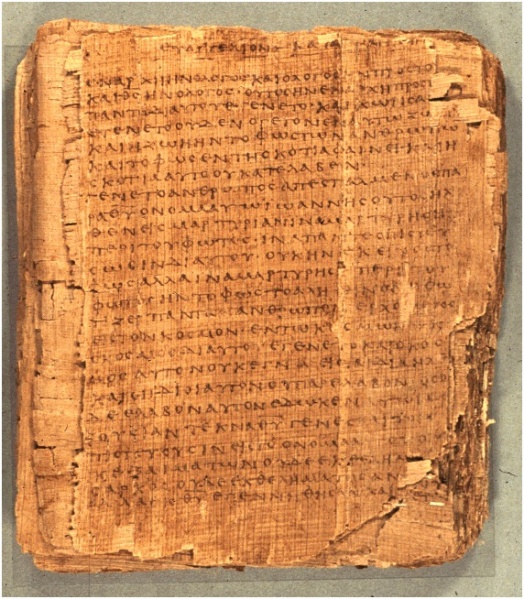 ΕΥΑΓΓΕΛΙΟΝ ΚΑΤΑ
ΕΝ ΑΡΧΗ ΗΝ Ο ΛΟΓΟϹ ΚΑΙ Ο ΛΟΓΟϹ ΗΝ ΠΡΟϹ ΤΟ
ΚΑΙ ΘϹ ΗΝ Ο ΛΟΓΟϹ ΟΥΤΟϹ ΗΝ ΕΝ ΑΡΧΗ ΠΡΟϹ
ΠΑΝΤΑ ΔΙ ΑΥΤΟΥ ΕΓΕΝΕΤΟ ΚΑΙ ΧΩΡΙϹ Α
ΕΓΕΝΕΤΟ ΟΥΔΕΝ Ο ΓΕΓΟΝΕΝ ΕΝ ΑΥΤΩ ΖΩ
ΚΑΙ Η ΖΩΗ ΗΝ ΤΟ ΦΩϹ ΤΩΝ ΑΝΘΡΩΠΩ
ΚΑΙ ΤΟ ΦΩϹ ΕΝ ΤΗ ϹΚΟΤΙΑ ΦΑΙΝΕΙ ΚΑΙ Η
ϹΚΟΤΙΑ ΑΥΤΟ ΟΥ ΚΑΤΕΛΑΒΕΝ
ΕΓΕΝΕΤΟ ΑΝΘΡΩΠΟϹ ΑΠΕϹΤΑΛΜΕΝΟϹ ΠΑ
ΡΑ ΘΥ ΟΝΟΜΑ ΑΥΤΩ ΙΩΑΝΝΗϹ ΟΥΤΟϹ ΗΛ
ΘΕΝ ΕΙϹ ΜΑΡΤΥΡΙΑΝ ΙΝΑ ΜΑΡΤΥΡΗϹΗ
ΠΕΡΙ ΤΟΥ ΦΩΤΟϹ ΙΝΑ ΠΑΝΤΕϹ ΠΙϹΤΕΥ
ϹΩϹΙΝ ΔΙ ΑΥΤΟΥ ΟΥΚ ΗΝ ΕΚΕΙΝΟϹ ΤΟ
ΦΩϹ ΑΛΛΑ ΙΝΑ ΜΑΡΤΥΡΗϹΗ ΠΕΡΙ ΤΟΥ
ΦΩΤΟϹ ΗΝ ΤΟ ΦΩϹ ΤΟ ΑΛΗΘΙΝΟΝ Ο ΦΩ
ΤΙΖΕΙ ΠΑΝΤΑ ΑΝΘΡΩΠΟΝ ΕΡΧΟΜΕΝΟΝ
ΕΙϹ ΤΟΝ ΚΟϹΜΟΝ ΕΝ ΤΩ ΚΟϹΜΩ ΗΝ
ΚΟϹΜΟϹ ΔΙ ΑΥΤΟΥ ΕΓΕΝΕΤΟ ΚΑΙ Ο ΚΟϹ
ΜΟϹ ΑΥΤΟΝ ΟΥΚ ΕΓΝΩ ΕΙϹ ΤΑ ΙΔΙΑ ΗΛ
ΚΑΙ ΟΙ ΙΔΙΟΙ ΑΥΤΟΝ ΟΥ ΠΑΡΕΛΑΒΟΝ ΟϹΟ
ΔΕ ΕΛΑΒΟΝ ΑΥΤΟΝ ΕΔΩΚΕΝ ΑΥΤΟΙϹ
ΟΥϹΙΑΝ ΤΕΚΝΑ ΘΥ ΓΕΝΕϹ
ΠΙϹΤΕΥΟΥϹΙΝ ΕΙϹ ΤΟ ΟΝΟΜΑ ΑΥΤΟΥ
ΑΙΜΑΤΩΝ ΟΥΔΕ ΕΚ
ΟΥΔΕ ΕΚ ΘΕΛΗΜΑ ΑΝ
ΕΚ ΘΥ ΕΓΕΝΝΗΘΗϹΑΝ ΚΑΙ